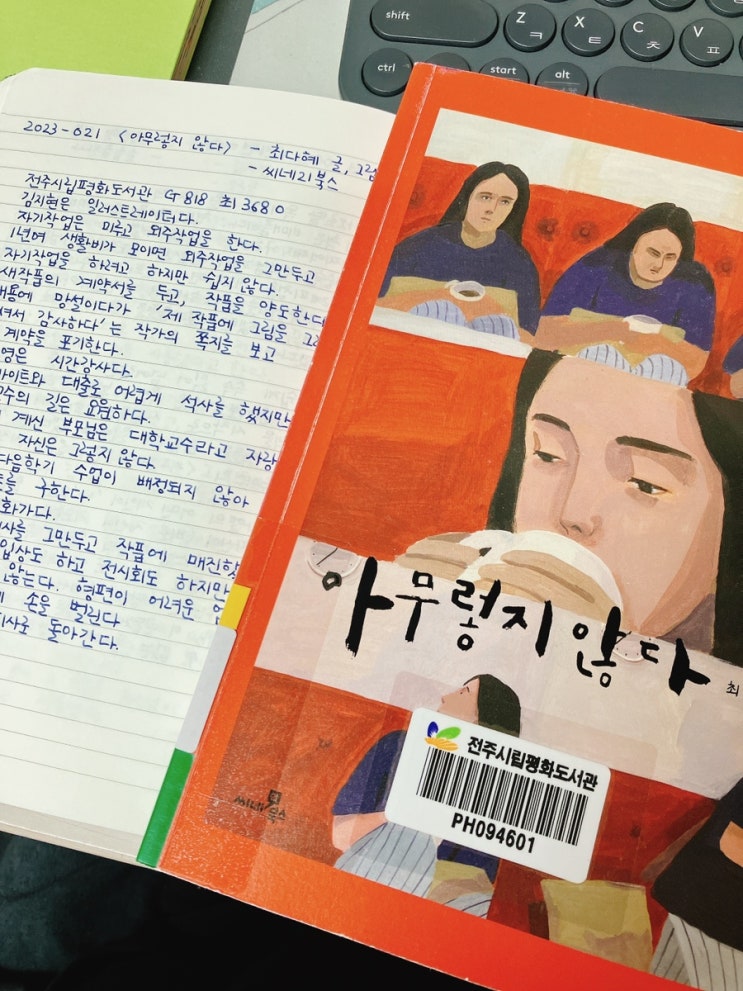 shift
Z ㅋ X ㅌ C ㅊ V ㅍ
ctrl start alt
2023-021 <아무렇지 않다> - 최다혜 글, 그림
- 씨네21북스
전주시립평화도서관 G 818 최 368 o
김지현은 일러스트레이터다.
자기작업은 미루고 외주작업을 한다.
1년여 생활비가 모이면 외주작업을 그만두고
자기작업을 하려고 하지만 쉽지 않다.
새작품의 계약서를 두고, 작품을 양도한다
내용에 망설이다가 '제 작품에 그림을 그
려서 감사하다'는 작가의 쪽지를 보고
계약을 포기한다.
영은 시간강사다.
바이트와 대출로 어렵게 석사를 했지만
교수의 길은 요원하다.
계신 부모님은 대학교수라고 자랑
자신은 그렇지 않다.
다음학기 수업이 배정되지 않아
를 구한다.
화가다.
사를 그만두고 작품에 매진했
입상도 하고 전시회도 하지만
않는다. 형편이 어려운
손을 벌린다
사로 돌아간다.
아무렇지 않다
최
씨네21북스
전주시립평화도서관
PH094601